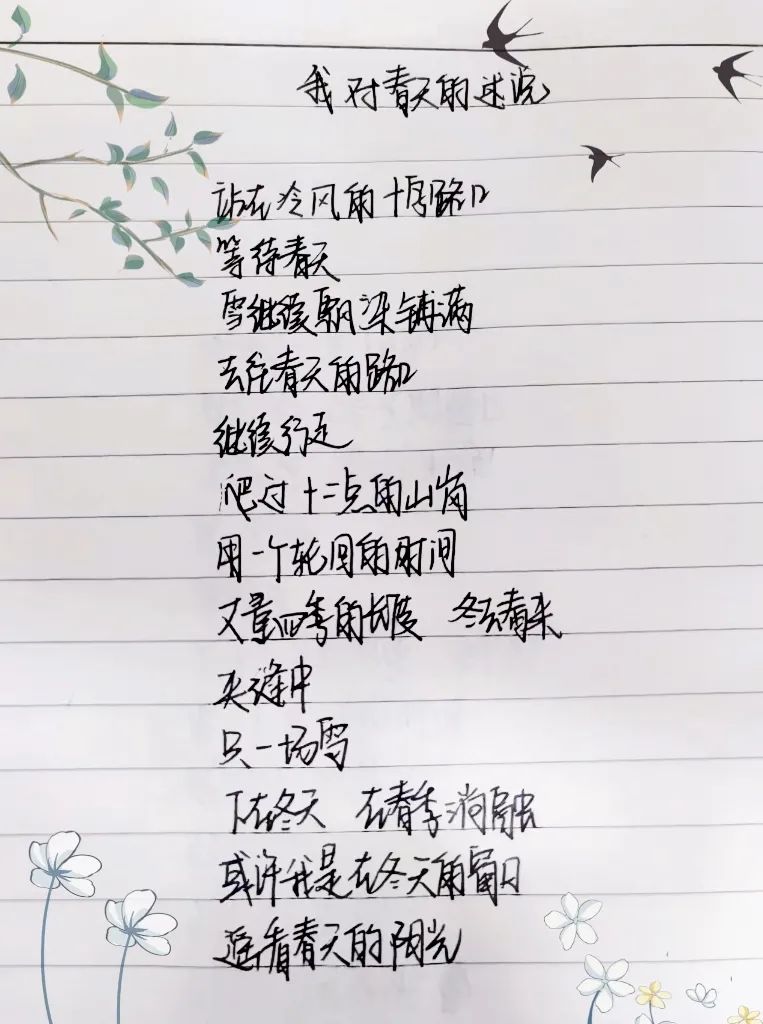 我对春天的述说
站在冷风的十字路口
等待春天
雪继续飘染铺满
去往春天的路口
继续行走
爬过十二点的山岗
用一个轮回的时间
丈量四季的长度 冬去春来
夹缝中
只一场雪
下在冬天 在春季消融
或许我是在冬天的窗口
遥看春天的阳光